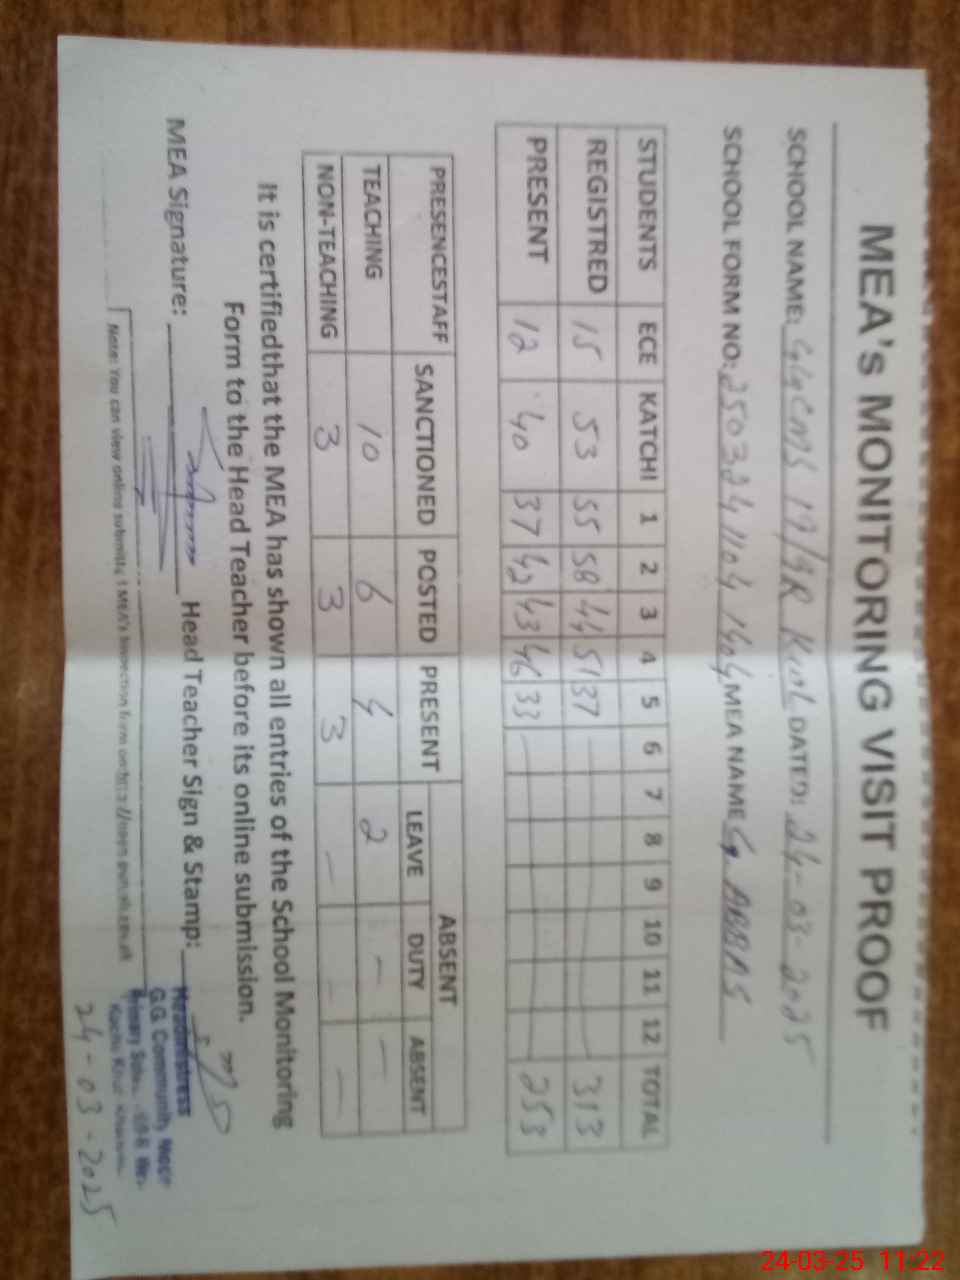 MEA's MONITORING VISIT PROOF
SCHOOL NAME: 19/9R DATED: 24-03-2025
SCHOOL FORM NO: MEA NAME ABBAS
STUDENTS ECE KATCHI 1 2 3 4 5 6 7 8 9 10 11 12 TOTAL
REGISTRED 15 53 55 58 44 51 37 313
PRESENT 12 40 37 42 43 46 33 253
PRESENCESTAFF SANCTIONED POSTED PRESENT ABSENT
LEAVE DUTY ABSENT
TEACHING 10 6 4 2 - -
NON-TEACHING 3 3 3 - - -
It is certifiedthat the MEA has shown all entries of the School Monitoring
Form to the Head Teacher before its online submission.
MEA Signature: Head Teacher Sign & Stamp:
Headmistress
G.G. Community
Note: You can view online MEA's Inspection from
24-03-2025
24-03-25 11:22